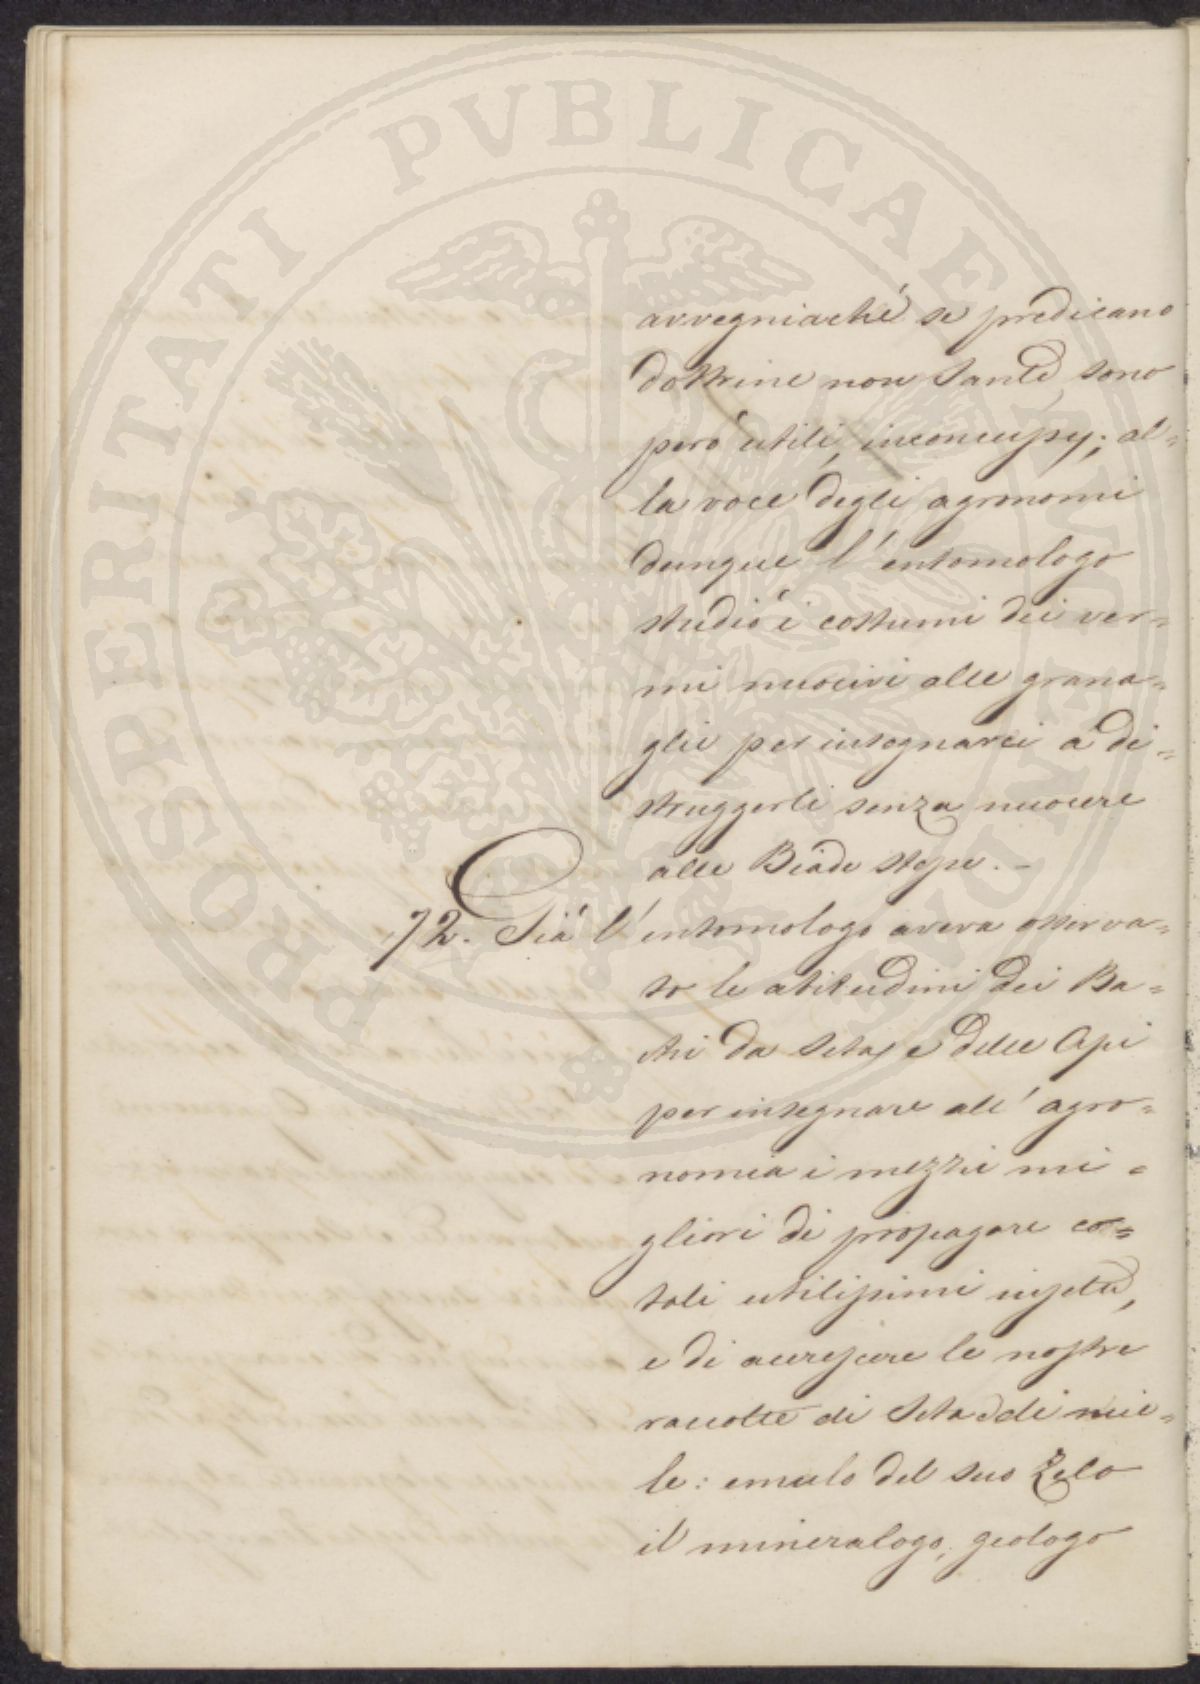 PROSPERITATI PVBLICAE AVGENDAE
avvegniaché se predicano
dottrine non Sante, sono
peró utili, inconcusse; al=
la voce degli agronomi
dunque l'entomologo
studió i costumi dei ver=
mi nuocivi alle grana=
glie per insegnarci a di=
struggerli senza nuocere
alle Biade stesse. -
72. Giá l'entomologo aveva osserva=
to le abitudini dei Ba=
chi da Seta, e delle Api
per insegnare all'agro=
nomia i mezzi mi=
gliori di propagare co=
tali utilissimi insetti,
e di accrescere le nostre
raccolte di Seta e di mie=
le: emulo del suo Zelo
il mineralogo, geologo